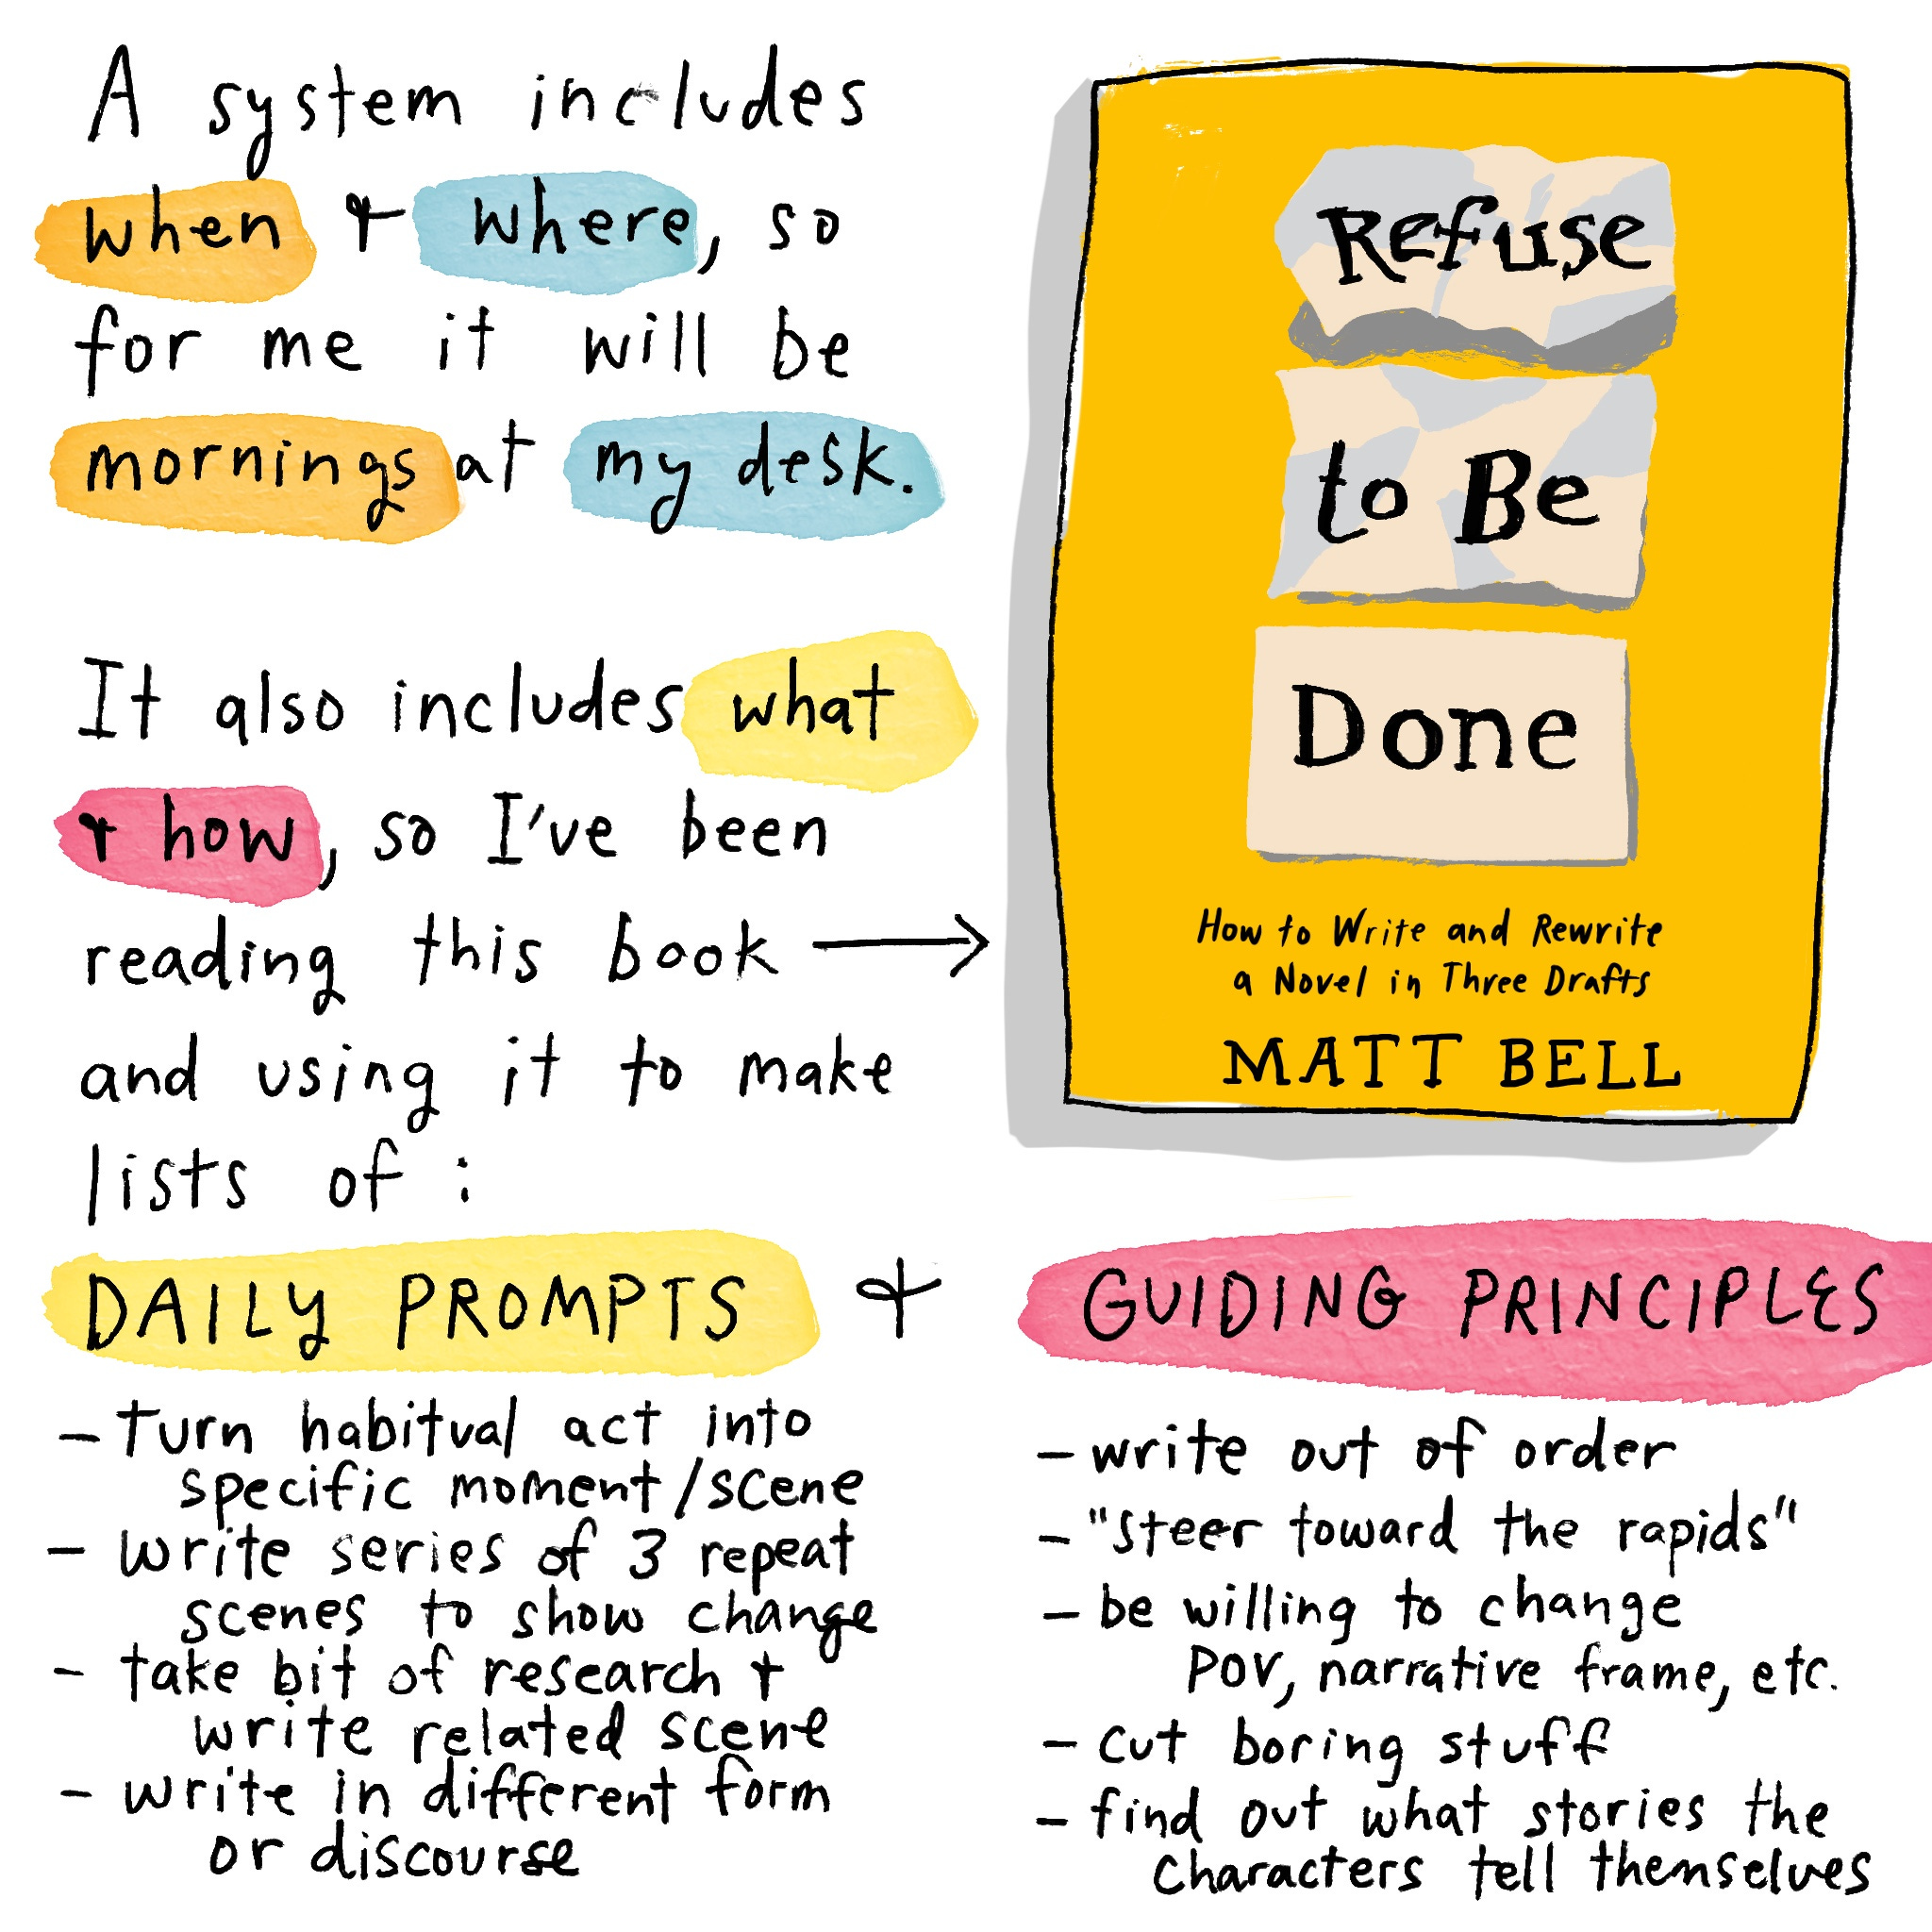 A system includes
when + where, so
for me it will be
mornings at my desk.
It also includes what
+ how, so I've been
reading this book →
and using it to make
lists of :
Refuse
to Be
Done
How to Write and Rewrite
a Novel in Three Drafts
MATT BELL
DAILY PROMPTS +
- turn habitual act into
specific moment/scene
- write series of 3 repeat
scenes to show change
- take bit of research +
write related scene
- write in different form
or discourse
GUIDING PRINCIPLES
- write out of order
- "steer toward the rapids"
- be willing to change
POV, narrative frame, etc.
- cut boring stuff
- find out what stories the
characters tell themselves